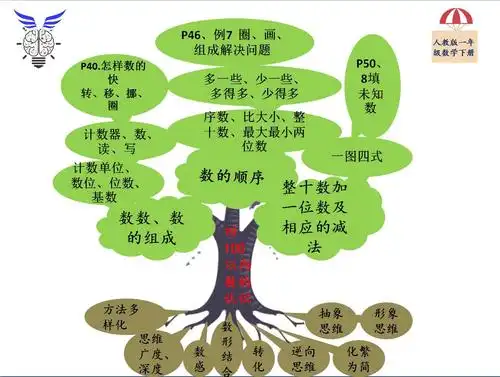 人教版一年
级数学下册
P46、例7 圈、画、
组成解决问题
P40.怎样数的
快
转、移、挪、
圈
多一些、少一些、
多得多、少得多
P50、
8填
未知
数
计数器、数、
读、写
序数、比大小、整
十数、最大最小两
位数
一图四式
计数单位、
数位、位数、
基数
数的顺序
整十数加
一位数及
相应的减
法
数数、数
的组成
方法多
样化
思维
广度、
深度
数感
数形结合
转化
逆向
思维
抽象
思维
化繁
为简
形象
思维